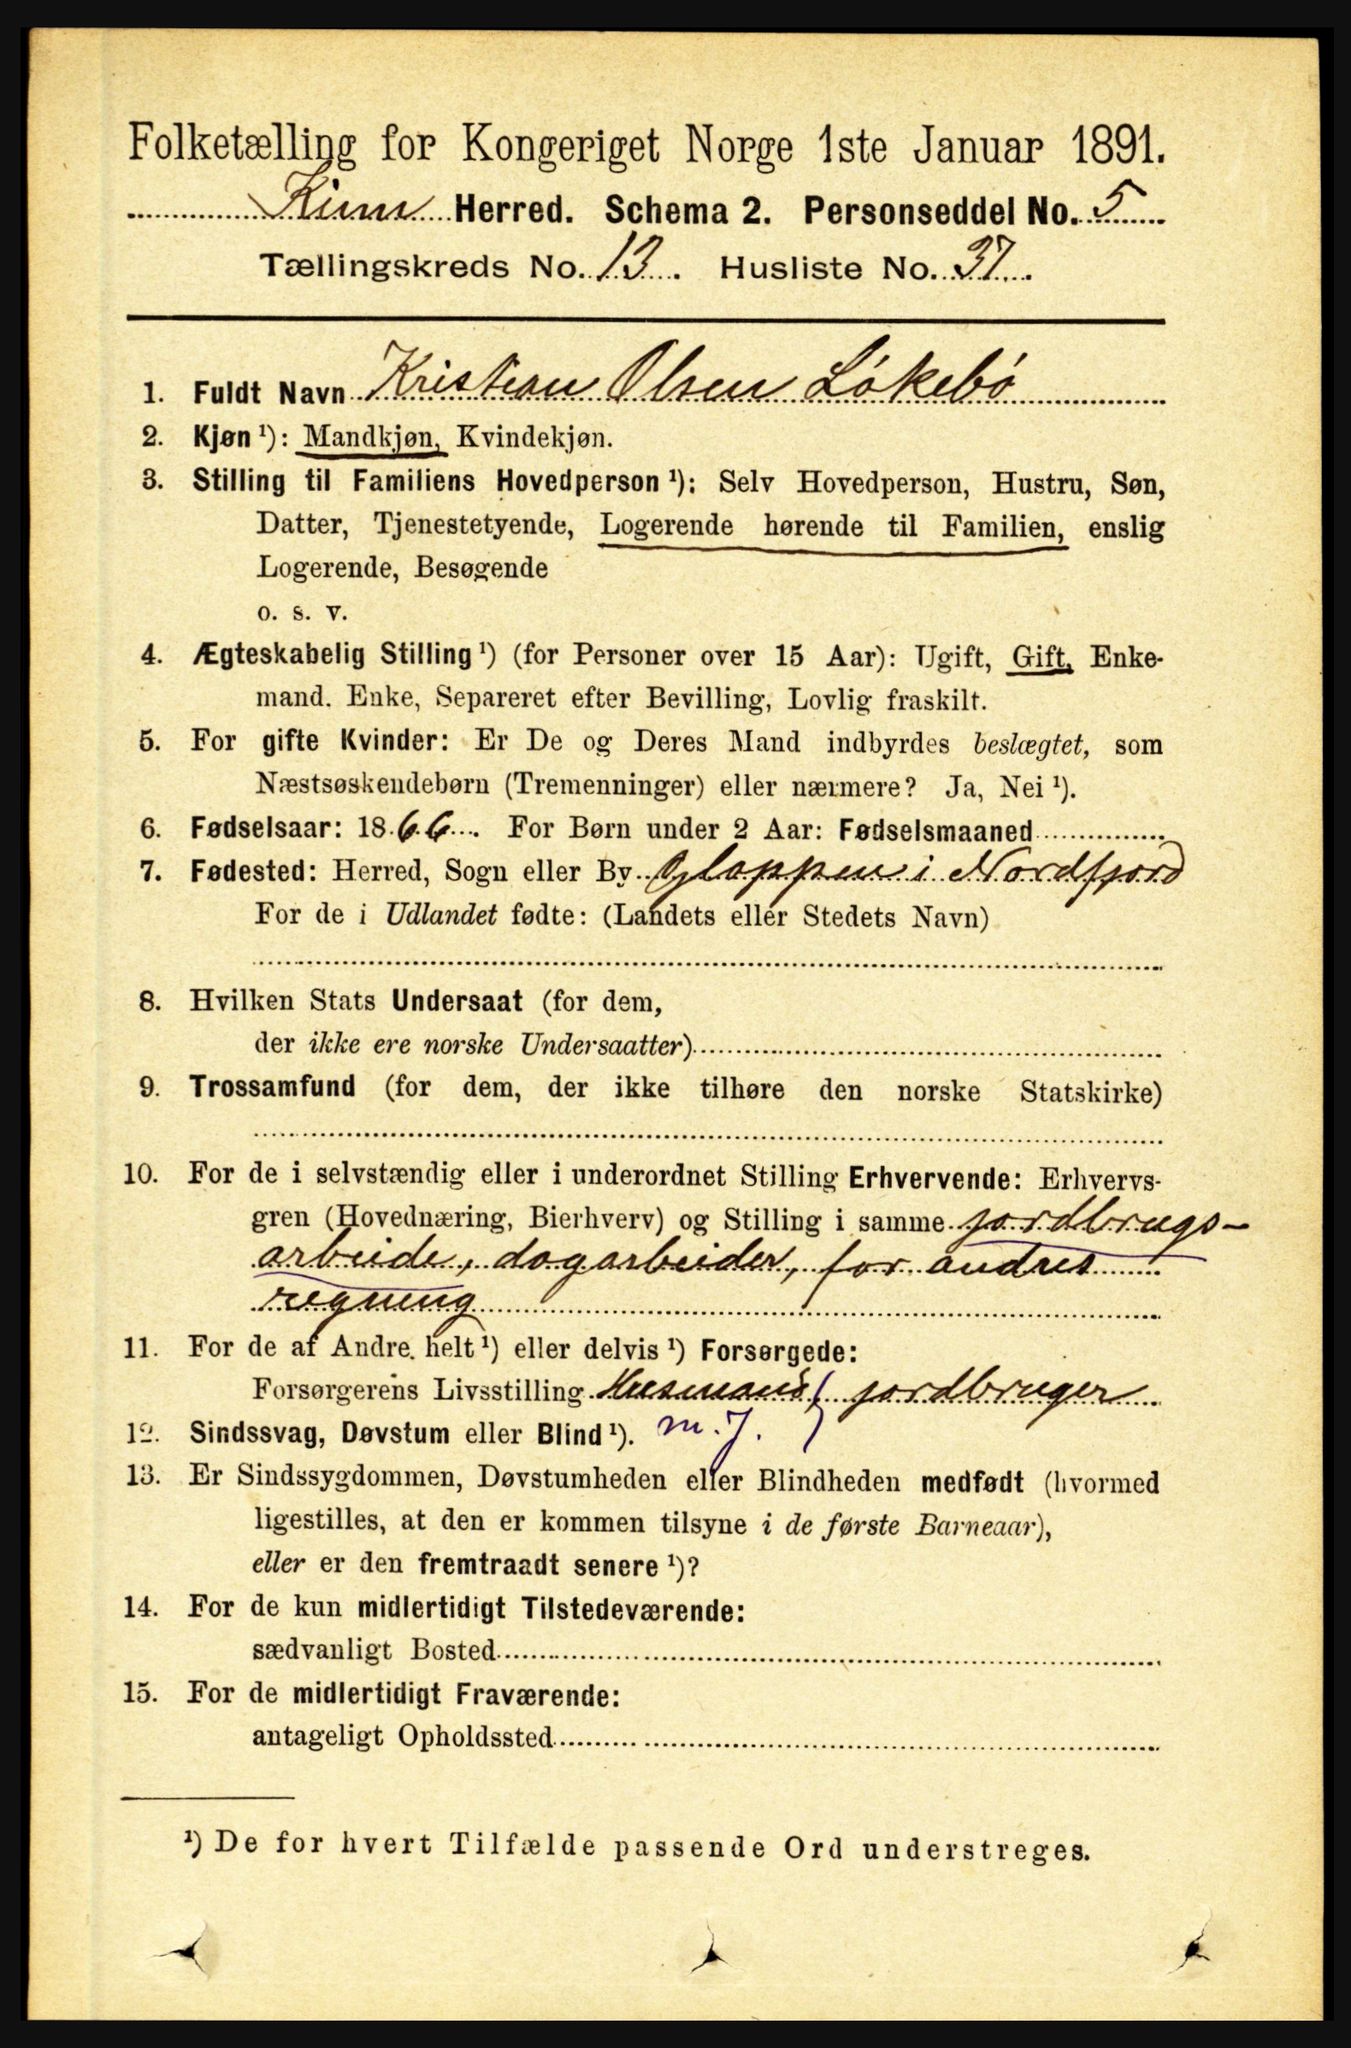 Folketælling for Kongeriget Norge 1ste Januar 1891.
Kinn Herred. Schema 2. Personseddel No. 5
Tællingskreds No. 13. Husliste No. 37.
1. Fuldt Navn Kristian Olsen Løkebø
2. Kjøn ¹): Mandkjøn, Kvindekjøn.
3. Stilling til Familiens Hovedperson ¹): Selv Hovedperson, Hustru, Søn,
Datter, Tjenestetyende, Logerende hørende til Familien, enslig
Logerende, Besøgende
o. s. v.
4. Ægteskabelig Stilling ¹) (for Personer over 15 Aar): Ugift, Gift, Enke-
mand, Enke, Separeret efter Bevilling, Lovlig fraskilt.
5. For gifte Kvinder: Er De og Deres Mand indbyrdes beslægtet, som
Næstsøskendebørn (Tremenninger) eller nærmere? Ja, Nei ¹).
6. Fødselsaar: 1866. For Børn under 2 Aar: Fødselsmaaned
7. Fødested: Herred, Sogn eller By Gloppen i Nordfjord
For de i Udlandet fødte: (Landets eller Stedets Navn)
8. Hvilken Stats Undersaat (for dem,
der ikke ere norske Undersaatter)
9. Trossamfund (for dem, der ikke tilhøre den norske Statskirke)
10. For de i selvstændig eller i underordnet Stilling Erhvervende: Erhvervs-
gren (Hovednæring, Bierhverv) og Stilling i samme jordbrugs-
arbeide, dagarbeider, for andres
regning
11. For de af Andre helt ¹) eller delvis ¹) Forsørgede:
Forsørgerens Livsstilling Husmand, jordbruger
12. Sindssvag, Døvstum eller Blind ¹). m. J.
13. Er Sindssygdommen, Døvstumheden eller Blindheden medfødt (hvormed
ligestilles, at den er kommen tilsyne i de første Barneaar),
eller er den fremtraadt senere ¹)?
14. For de kun midlertidigt Tilstedeværende:
sædvanligt Bosted
15. For de midlertidigt Fraværende:
antageligt Opholdssted
¹) De for hvert Tilfælde passende Ord understreges.